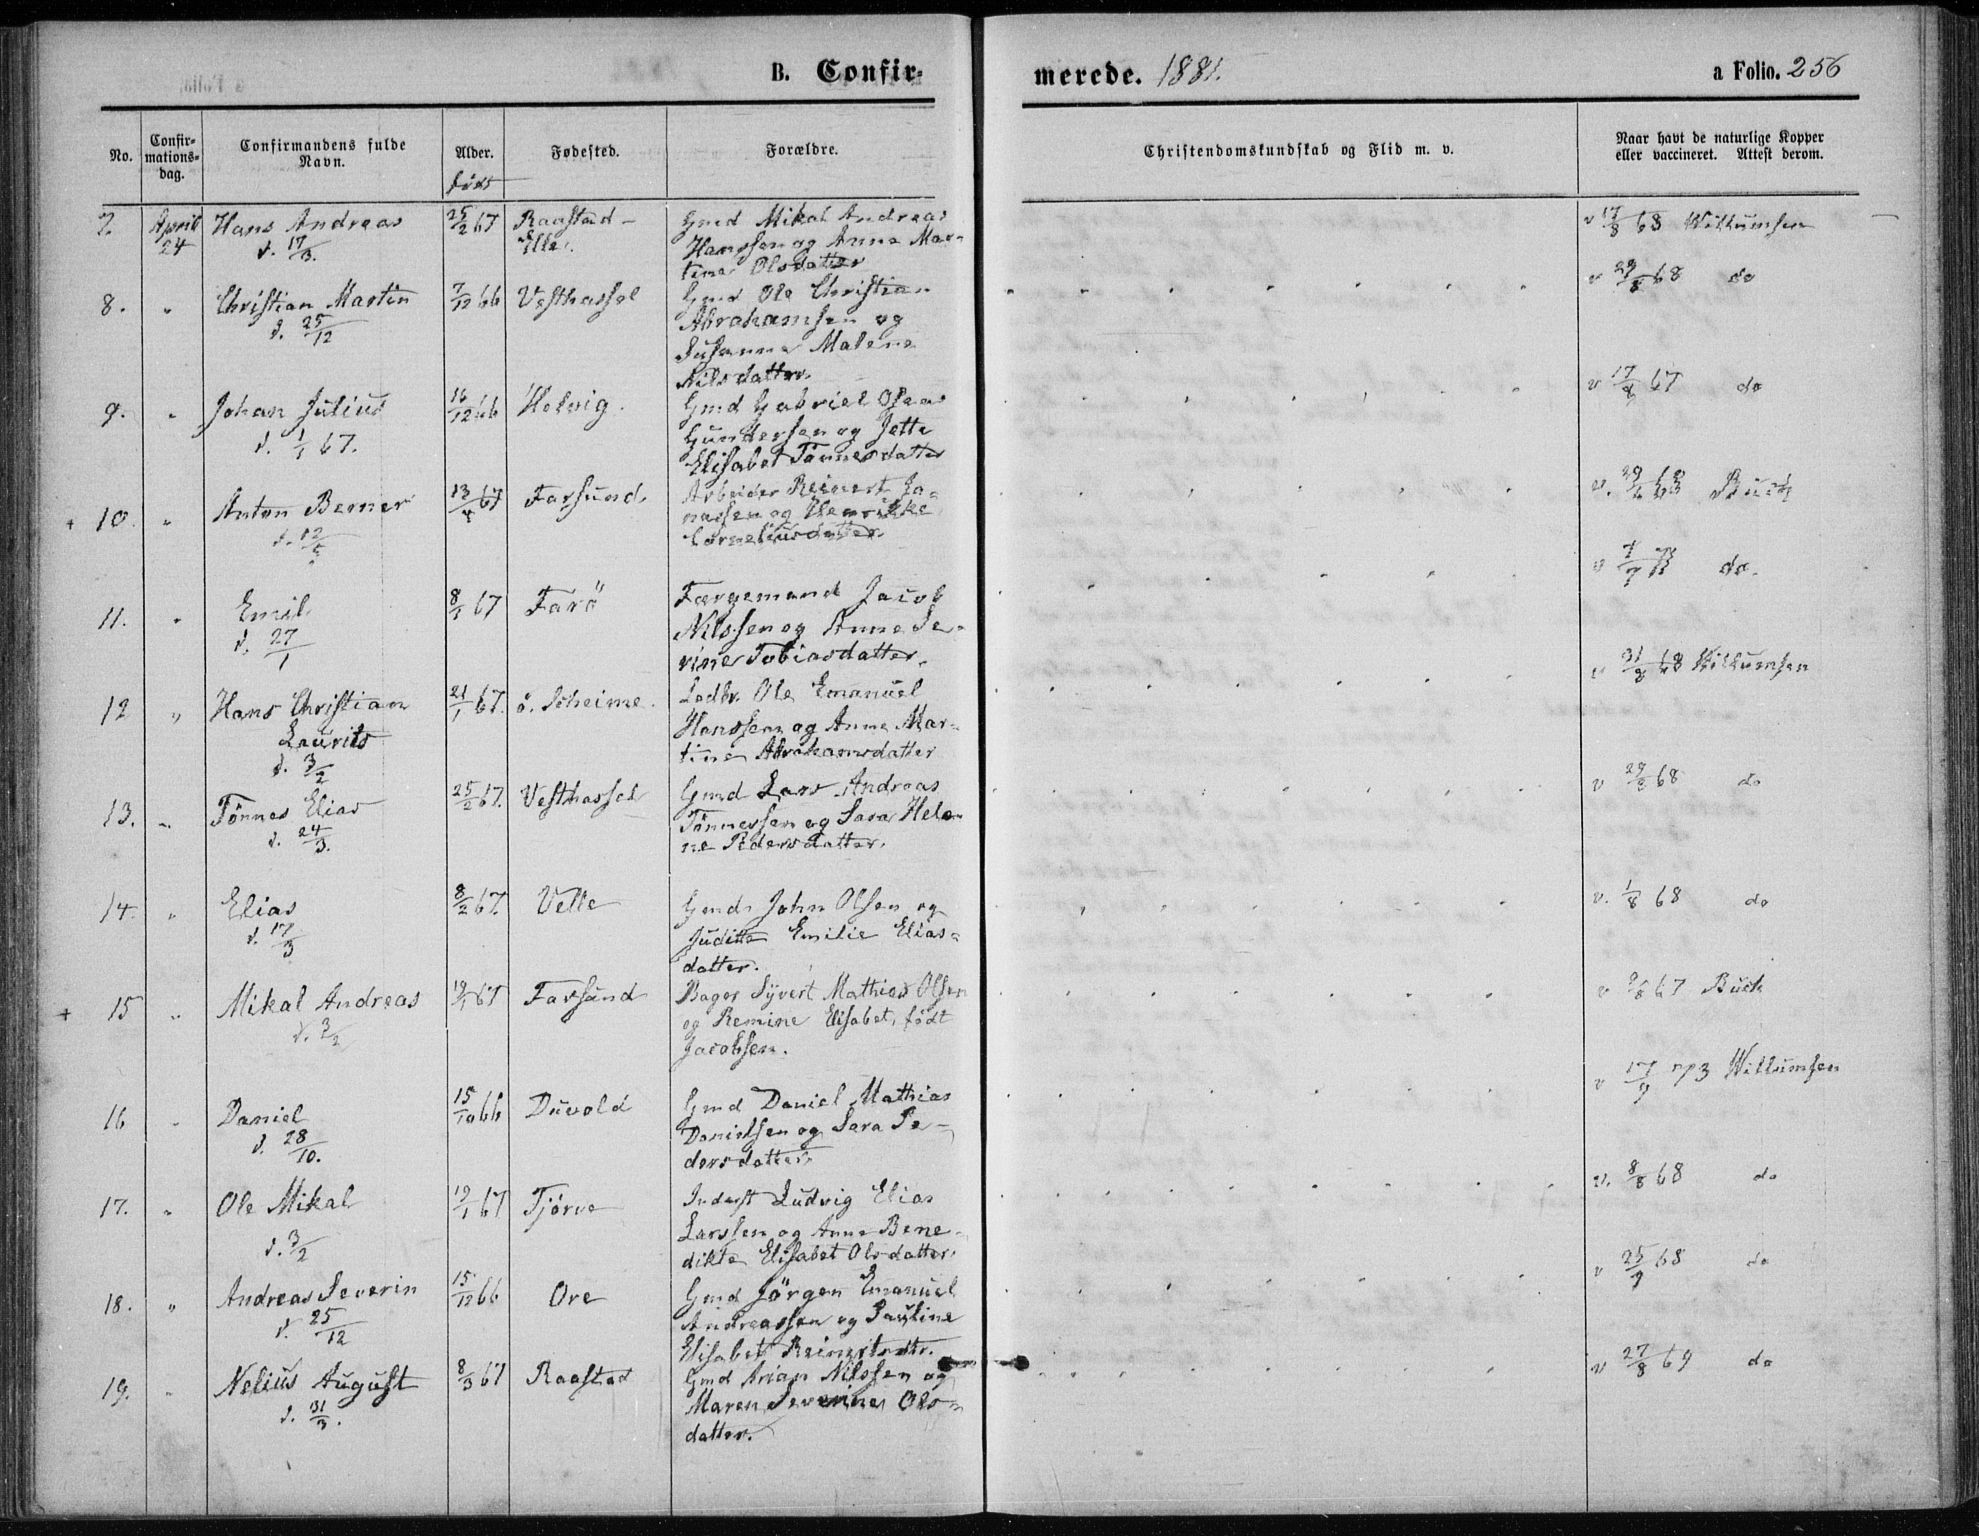 B. Confir-
merede. 1881.
a Folio. 256
No.
Confir-
mations-
dag.
Confirmandens fulde
Navn.
Alder.
Fødested.
Forældre.
Christendomskundskab og Flid m. v.
Naar havt de naturlige Kopper
eller vaccineret. Attest derom.
7. April Hans Andreas 25/2 67 Raastad Gmd Mikal Andreas v 17/8 68 Willumsen
24 d. 17/3. Hanssen og Anne Mar-
tine Olsdatter
8. " Christian Martin 7/12 66 Vesthassel Gmd Ole Christian v 29/8 68 do
d. 25/12 Abrahamsen og
Susanne Malene
Nilsdatter.
9. " Johan Julius 16/12 66 Helvig. Gmd Gabriel Olaus v 17/9 67 do
d. 1/1 67. Gundersen og Jette
Elisabet Tønnesdatter
+ 10. " Anton Berner 13/4 67 Farsund. Arbeider Reinert Jo-
nassen og Henrikke
Corneliusdatter.
11. " Emil 8/1 67 Farö Færgemand Jacob do.
d. 27/1 Nilssen og Anne Se-
rine Tobiasdatter.
12 " Hans Christian 21/1 67. ö. Skeime. Ledbr. Ole Emanuel v 31/8 68 Willumsen
Laurits Hanssen og Anne Mar-
d. 3/2 tine Abrahamsdatter
13. " Tönnes Elias 25/2 67. Vesthassel Gmd Lars Andreas v 29/8 68 do
d. 24/3. Tönnessen og Sara Hele-
ne Pedersdatter.
14. " Elias 8/2 67. Velle Gmd John Olsen og v. 1/8 68 do
d. 17/3 Juditte Emilie Elias-
datter.
+ 15 " Mikal Andreas 19/1 67 Farsund Bager Syvert Mathias Olsen v 9/8 67 Buch
d. 3/2 og Remine Elisabet, født
Jacobsen.
16 " Daniel 15/10 66 Duvold Gmd Daniel Mathias v 17/9 73 Willumsen
d. 28/10. Danielsen og Sara Pe-
dersdatter.
17. " Ole Mikal 19/1 67 Tjørve Inderst Ludvig Elias v. 8/8 68 do
d. 3/2 Larssen og Anne Bene-
dikte Elisabet Olsdatter.
18. " Andreas Severin 15/12 66 Ore Gmd Jörgen Emanuel v 25/9 68 do
d. 25/12 Andreassen og Pauline
Elisabet Reinertsdtr.
19. " Nelius August 8/3 67 Raastad Gmd Arian Nilssen og v 27/8 69 do
d. 31/3. Maren Severine Ols-
datter.